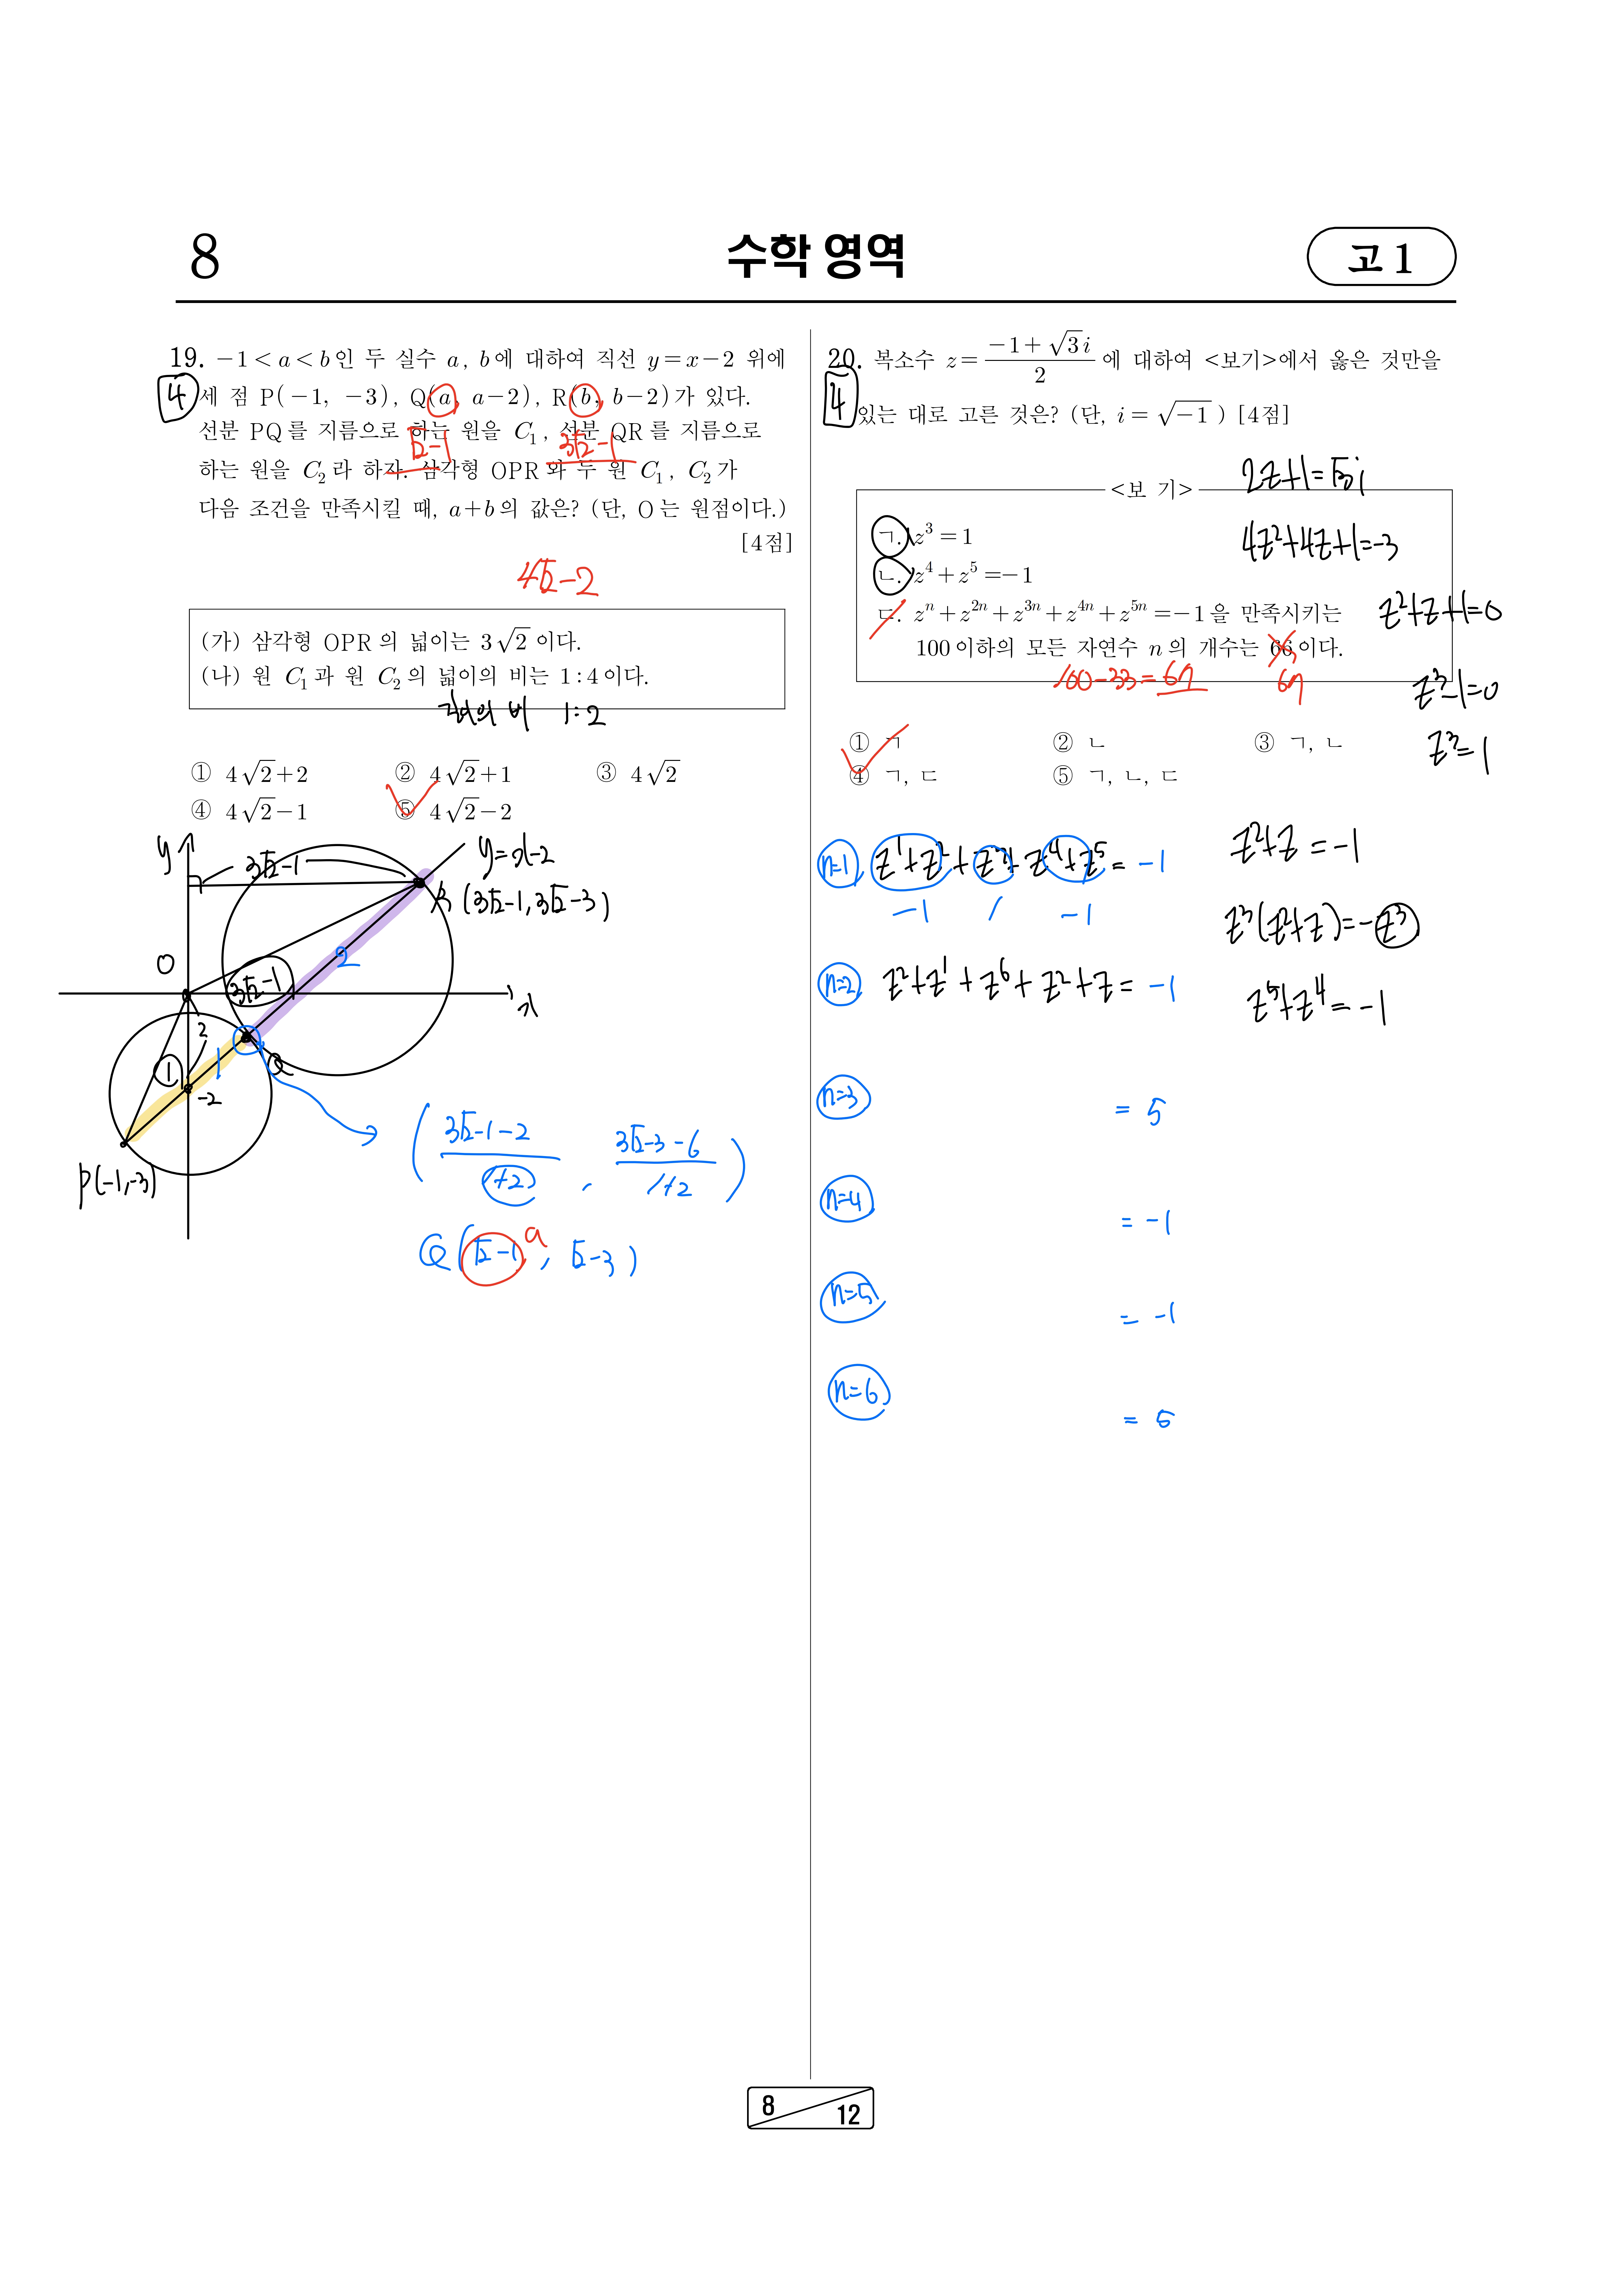 8
수학 영역
고 1
19. -1 < a < b인 두 실수 a, b에 대하여 직선 y = x - 2 위에
4
세 점 P(-1, -3), Q(a, a-2), R(b, b-2)가 있다.
선분 PQ를 지름으로 하는 원을 C₁, 선분 QR를 지름으로
√2-1
3√2-1
하는 원을 C₂라 하자. 삼각형 OPR와 두 원 C₁, C₂가
다음 조건을 만족시킬 때, a+b의 값은? (단, O는 원점이다.)
[4점]
4√2-2
(가) 삼각형 OPR의 넓이는 3√2이다.
(나) 원 C₁과 원 C₂의 넓이의 비는 1:4이다.
길이의 비 1:2
① 4√2+2
② 4√2+1
③ 4√2
④ 4√2-1
⑤ 4√2-2
y
3√2-1
y=x-2
R(3√2-1, 3√2-3)
2
O
3√2-1
x
2
1
1
Q
-2
P(-1,-3)
(3√2-1-2 / 1+2 , 3√2-3-6 / 1+2)
Q(√2-1, √2-3)
a
20. 복소수 z = (-1+√3i)/2 에 대하여 <보기>에서 옳은 것만을
4
있는 대로 고른 것은? (단, i = √-1) [4점]
2z+1=√3i
<보 기>
ㄱ. z³ = 1
4z²+4z+1=-3
ㄴ. z⁴ + z⁵ = -1
ㄷ. zⁿ + z²ⁿ + z³ⁿ + z⁴ⁿ + z⁵ⁿ = -1을 만족시키는
z²+z+1=0
100 이하의 모든 자연수 n의 개수는 66이다.
100-33=67
67
z³-1=0
z³=1
① ㄱ
② ㄴ
③ ㄱ, ㄴ
④ ㄱ, ㄷ
⑤ ㄱ, ㄴ, ㄷ
n=1 z¹+z²+z³+z⁴+z⁵= -1
-1 1 -1
z²+z=-1
z³(z²+z)=-z³
n=2 z²+z¹+z⁶+z²+z= -1
z⁵+z⁴=-1
n=3 = 5
n=4 = -1
n=5 = -1
n=6 = 5
8
12